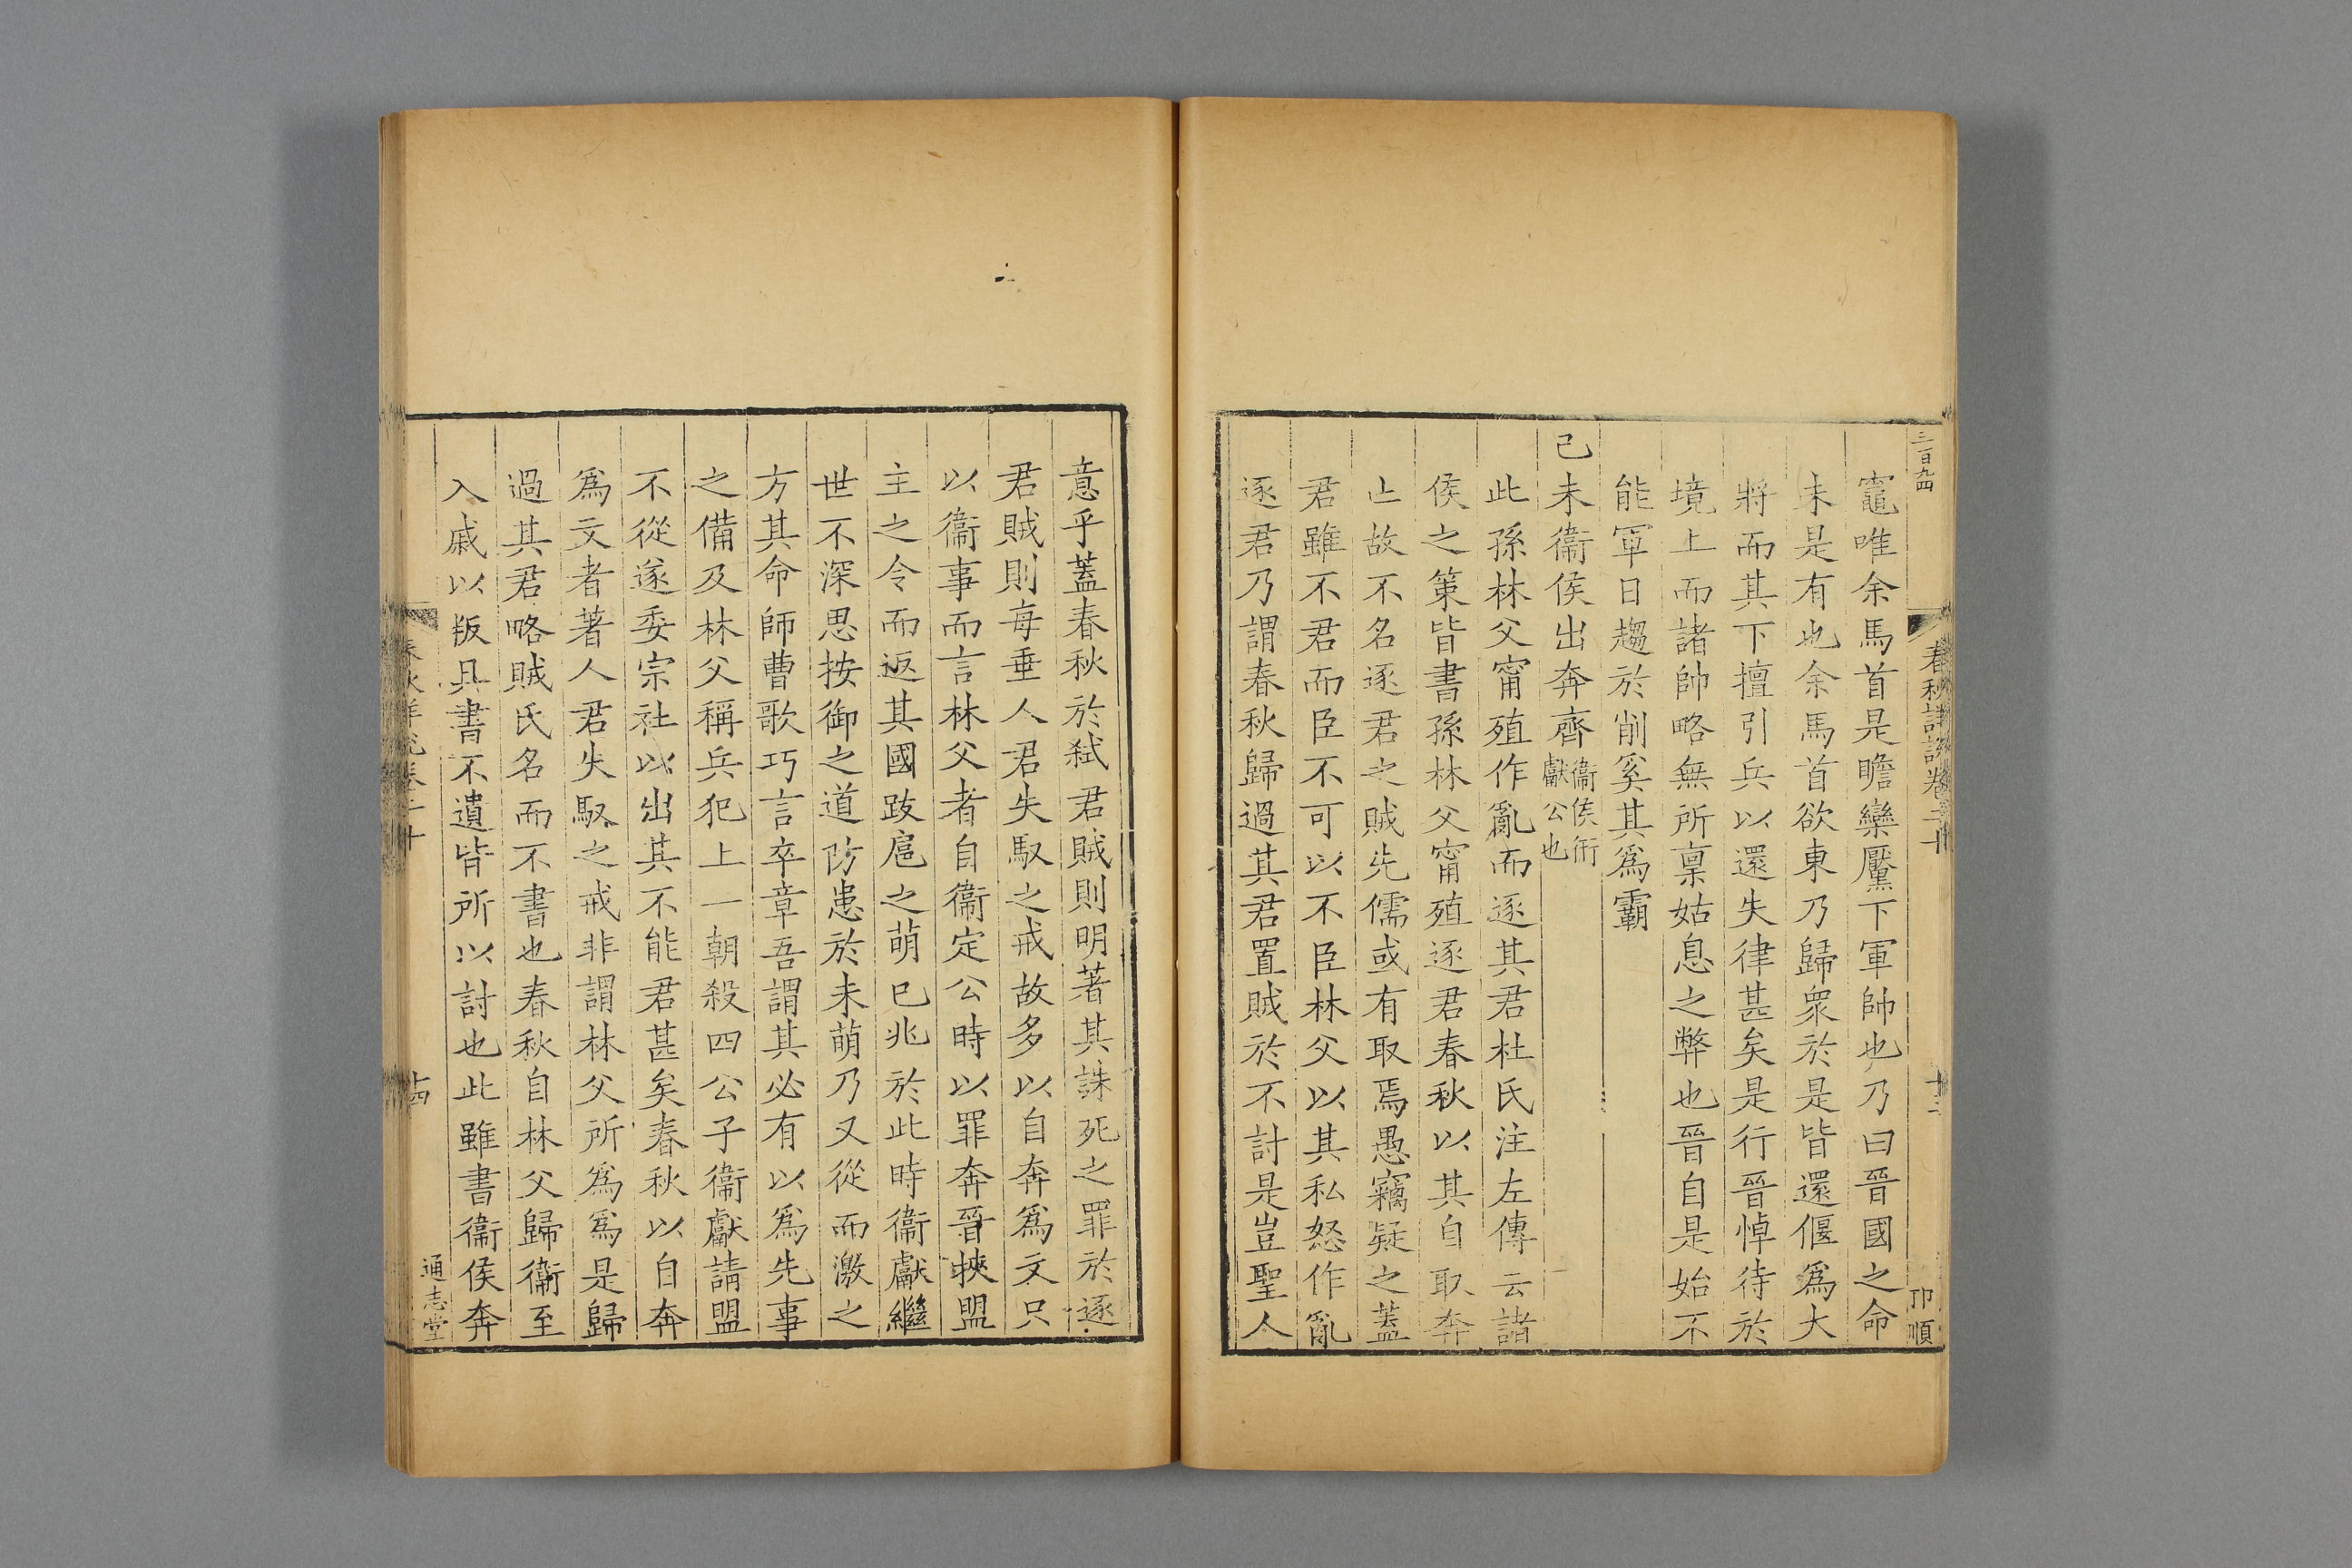 三百九四
春秋詳說卷二十
十三
卭順
竈唯余馬首是瞻欒黶下軍帥也乃曰晉國之命
未是有也余馬首欲東乃歸衆於是皆還偃爲大
將而其下擅引兵以還失律甚矣是行晉悼待於
境上而諸帥略無所稟姑息之弊也晉自是始不
能軍日趨於削奚其爲霸
己未衞侯出奔齊衞侯衎獻公也
此孫林父甯殖作亂而逐其君杜氏注左傳云諸
侯之策皆書孫林父甯殖逐君春秋以其自取奔
亡故不名逐君之賊先儒或有取焉愚竊疑之蓋
君雖不君而臣不可以不臣林父以其私怒作亂
逐君乃謂春秋歸過其君置賊於不討是豈聖人
意乎蓋春秋於弒君賊則明著其誅死之罪於逐
君賊則每垂人君失馭之戒故多以自奔爲文只
以衞事而言林父者自衞定公時以罪奔晉挾盟
主之令而返其國跋扈之萌已兆於此時衞獻繼
世不深思按御之道防患於未萌乃又從而激之
方其命師曹歌巧言卒章吾謂其必有以爲先事
之備及林父稱兵犯上一朝殺四公子衞獻請盟
不從遂委宗社以出其不能君甚矣春秋以自奔
爲文者著人君失馭之戒非謂林父所爲爲是歸
過其君略賊氏名而不書也春秋自林父歸衞至
入戚以叛具書不遺皆所以討也此雖書衞侯奔
春秋詳說卷二十
十四
通志堂